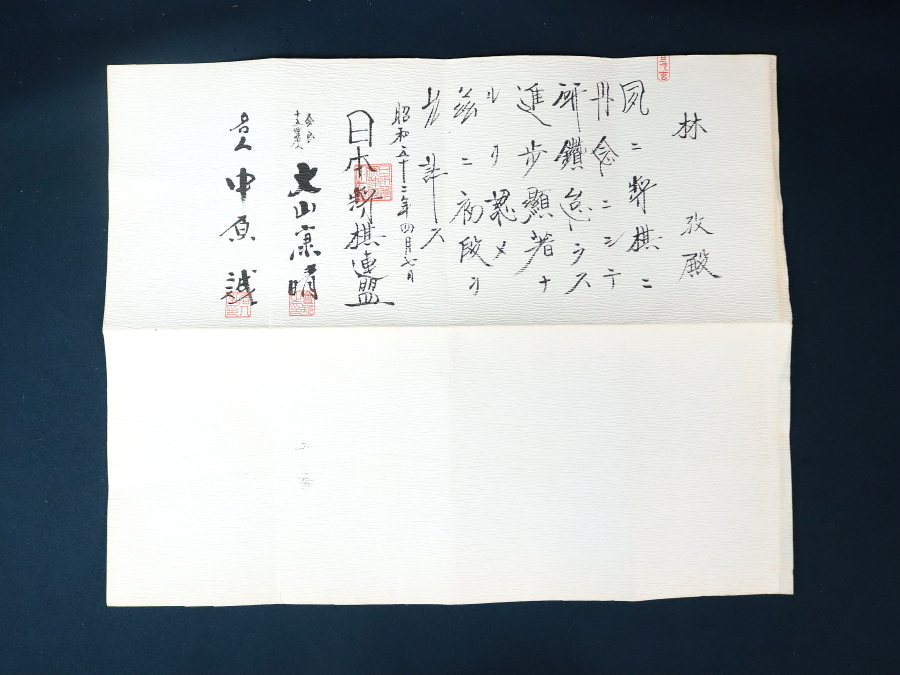 林 孜殿
夙ニ将棋ニ
丹念ニシテ
研鑽怠ラス
進歩顕著ナ
ルヲ認メ
茲ニ初段ヲ
允許ス
昭和五十二年四月七日
日本将棋連盟
会長
十五世名人
大山康晴
名人 中原 誠